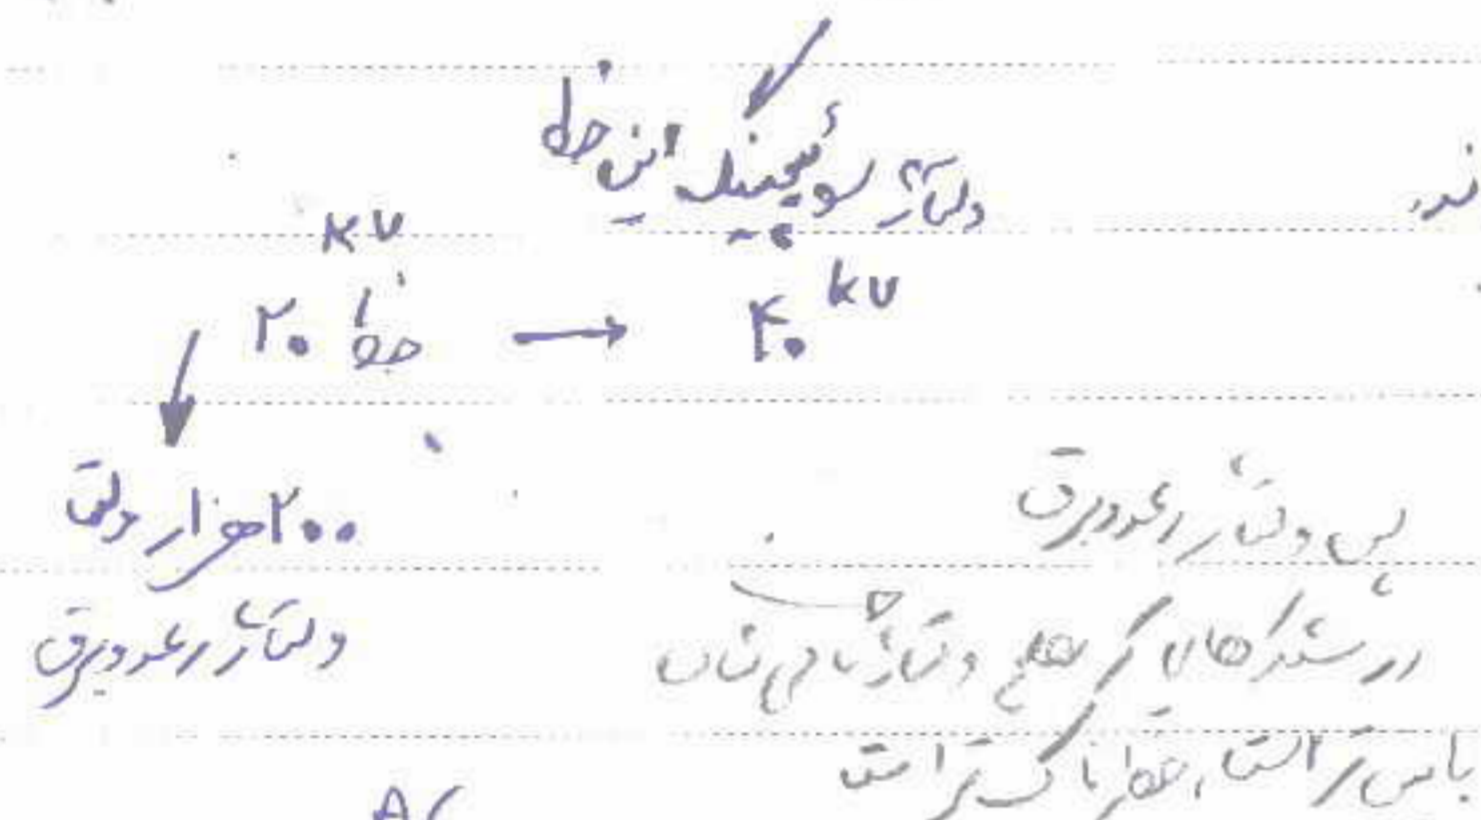 ولتاژ سوئیچینگ این خط
ند.
kv
خط ۲۰ → ۴۰ kv
۲۰۰ هزار ولت
ولتاژ رعد و برق
پس ولتاژ رعد و برق
در شبکه‌های که سطح ولتاژ نامی شان
پایین تر است، خطرناک تر است